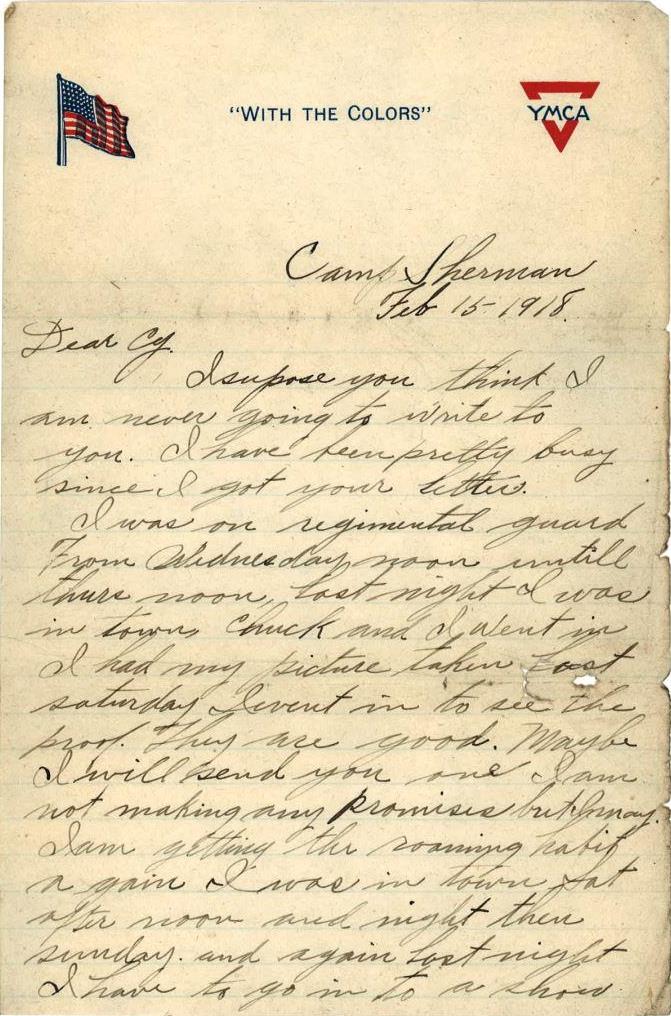 "WITH THE COLORS"
YMCA
Camp Sherman
Feb 15-1918.
Dear Cy.
I supose you think I
am never going to write to
you. I have been pretty busy
since I got your letter.
I was on regimental guard
From Wednesday noon untill
thurs noon, last night I was
in town, Chuck and I went in
I had my picture taken last
saturday I went in to see the
proof. They are good. Maybe
I will send you one I am
not making any promises but I may.
I am getting the roaming habit
a gain I was in town Sat
after noon and night then
sunday. and again last night
I have to go in to a show